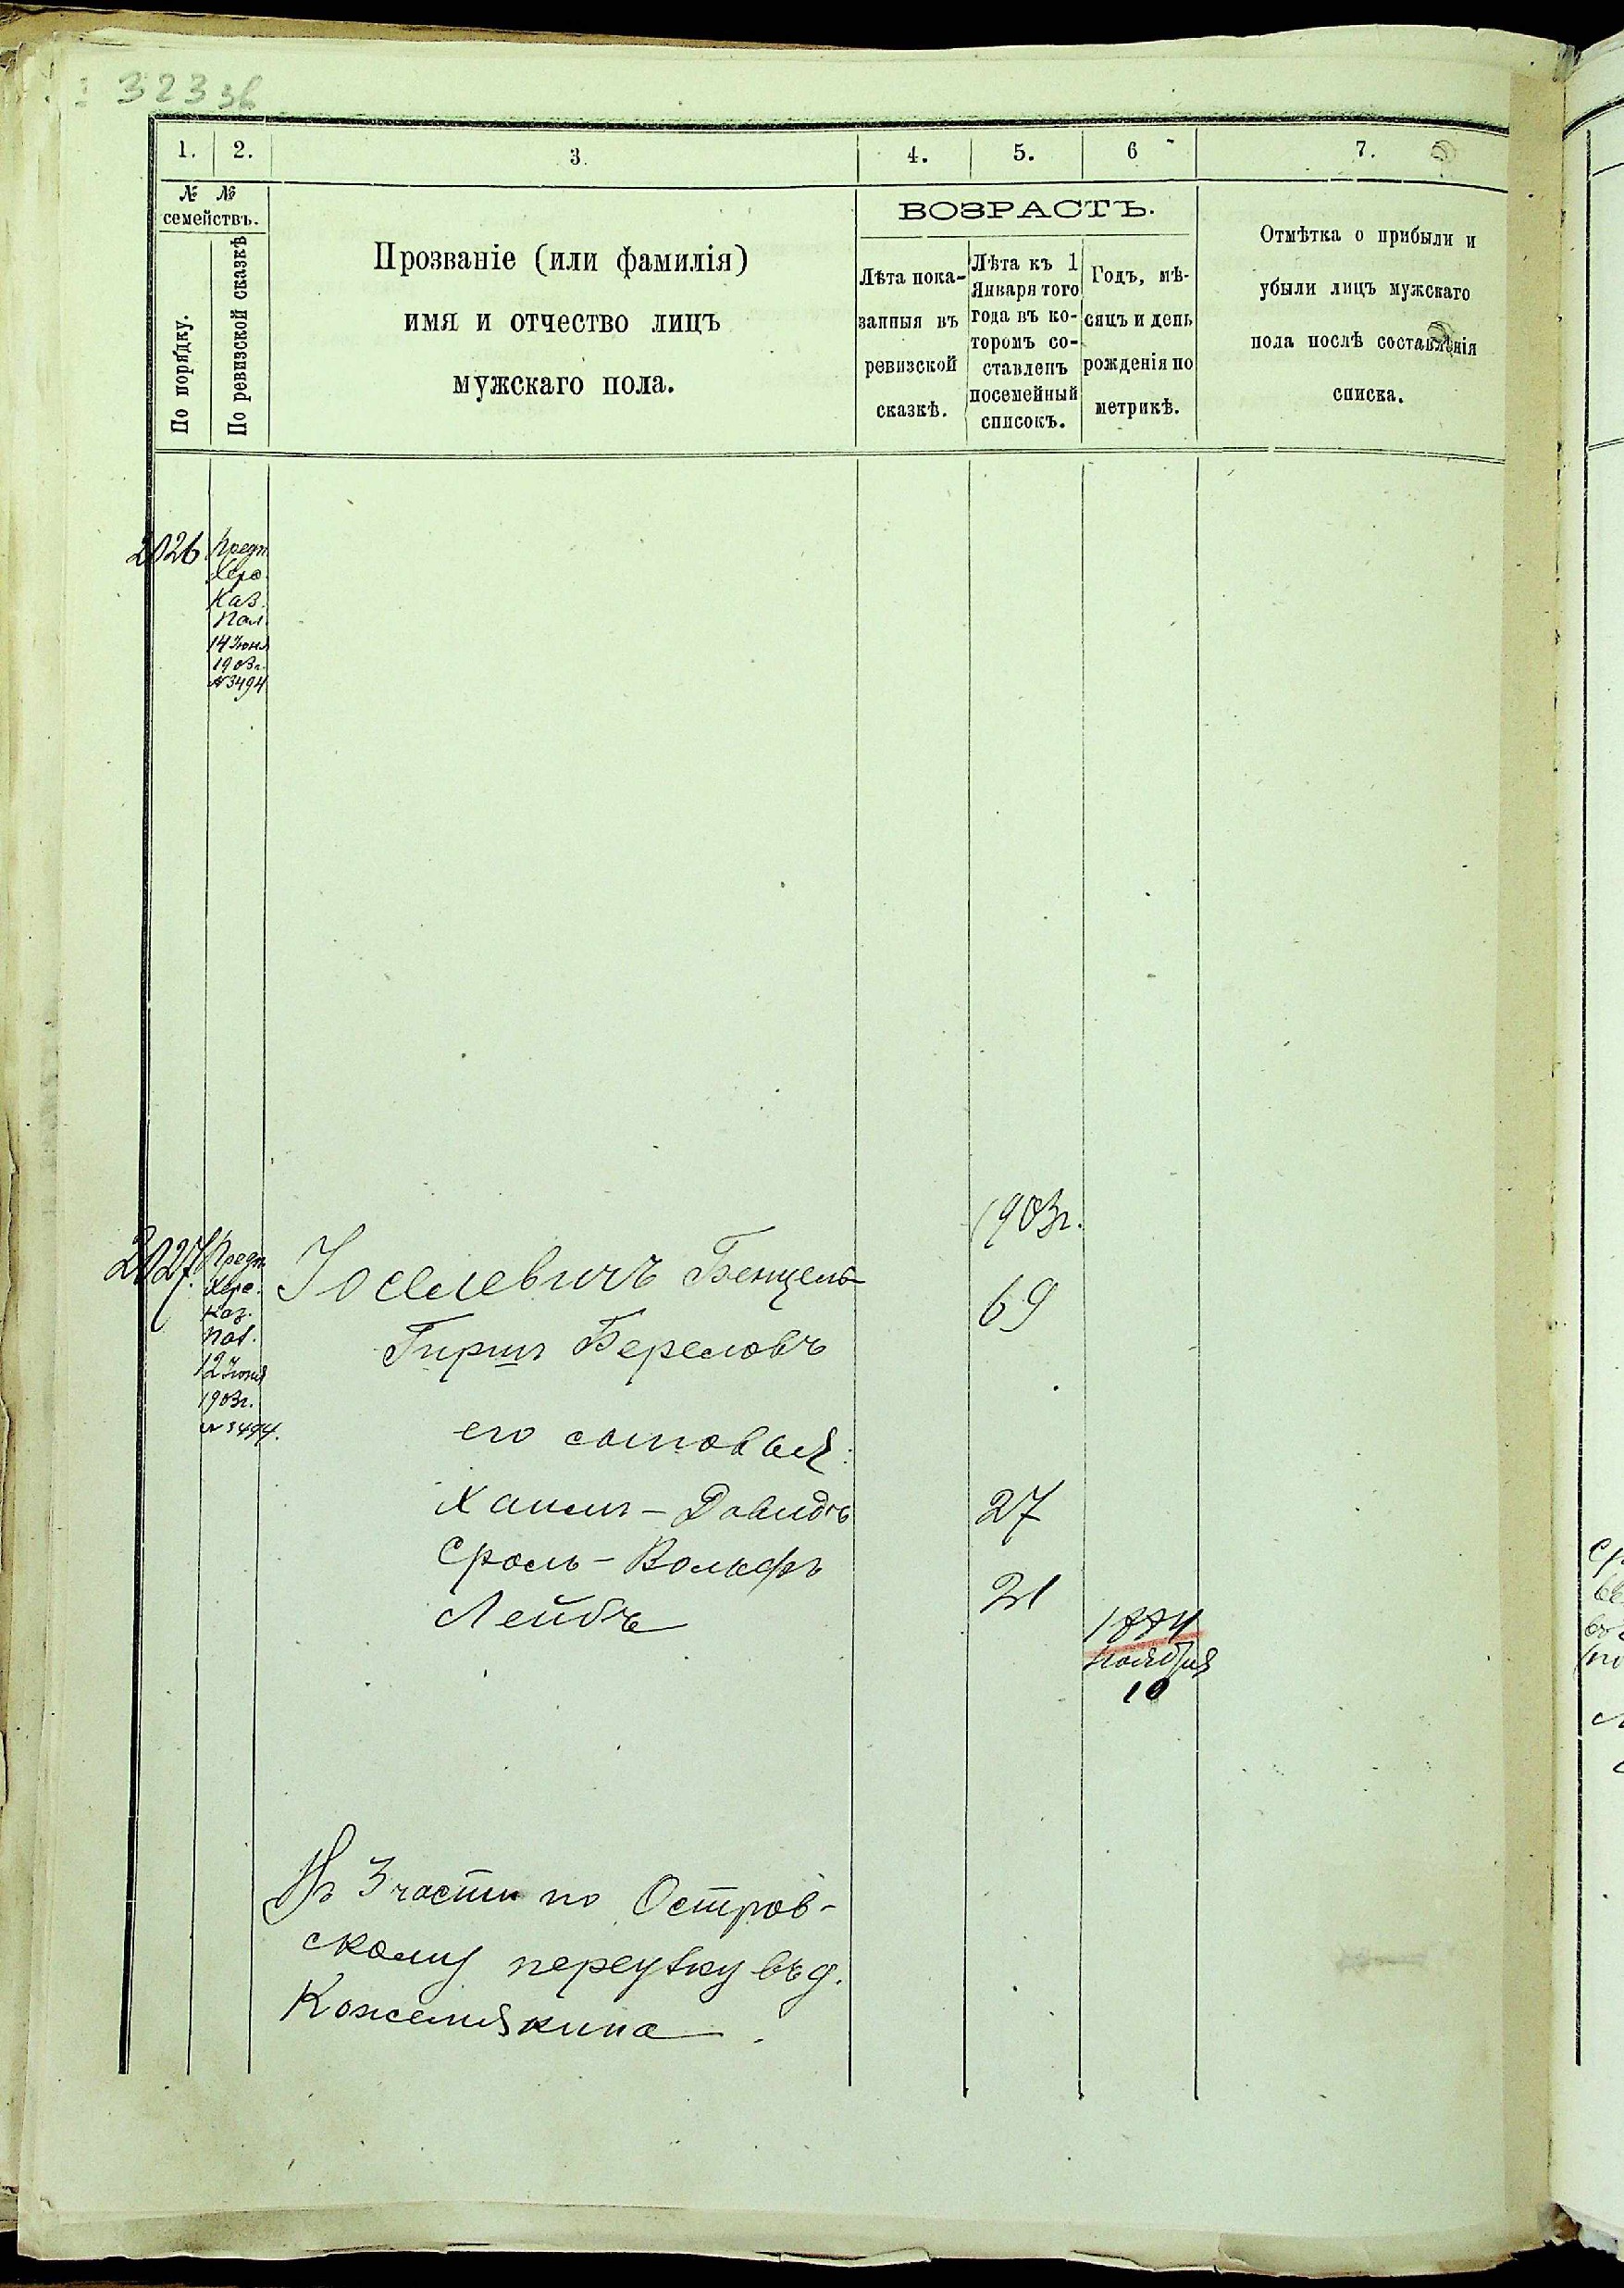 323 зв
1. 2. 3. 4. 5. 6 7.
№ №
семействъ.
По порядку.
По ревизской сказкѣ
Прозваніе (или фамилія)
имя и отчество лицъ
мужскаго пола.
ВОЗРАСТЪ.
Лѣта пока-
занныя въ
ревизской
сказкѣ.
Лѣта къ 1
Января того
года въ ко-
торомъ со-
ставленъ
посемейный
списокъ.
Годъ, мѣ-
сяцъ и день
рожденія по
метрикѣ.
Отмѣтка о прибыли и
убыли лицъ мужскаго
пола послѣ составленія
списка.
2026 Предп.
Хер.
Каз.
Пал.
14 Іюня
1903г.
№ 3494
1903г.
2027. Предп.
Хер.
Каз.
Пал.
12 Іюня
1903г.
№ 3494.
Іоселевичъ Бенцель- 69
Гиршъ Береловъ
его сыновья:
Хаимъ-Давидъ 27
Сроль-Вольфъ 21
Лейбъ 1884
ноября
10
Въ 3 части по Остров-
скому переулку въ д.
Кожемякина.